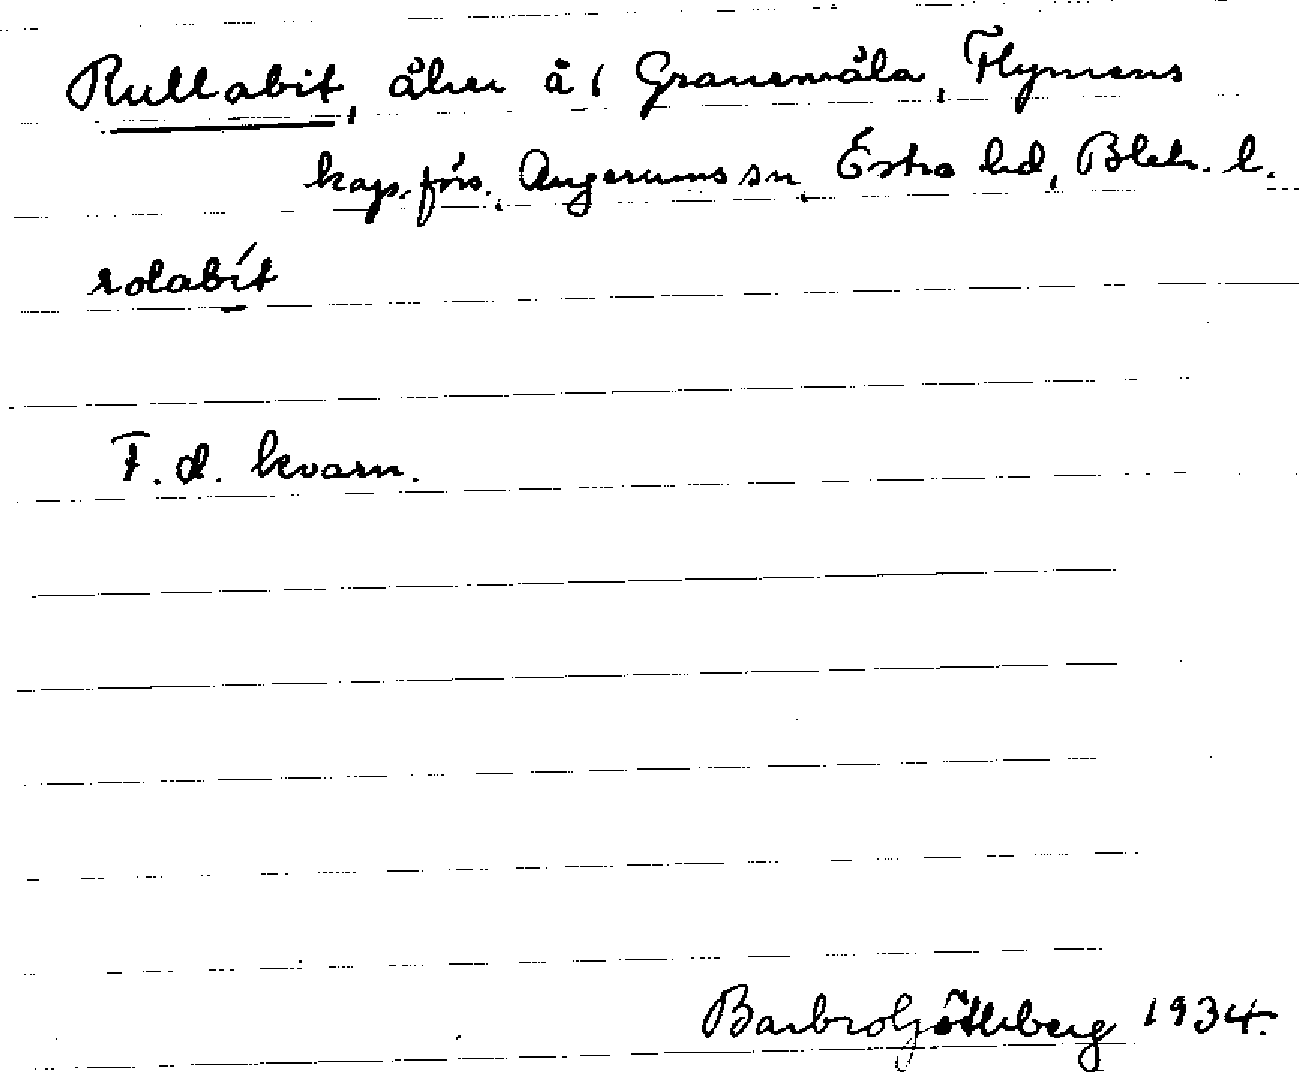 Rullabit, åker å 1 Granemåla, Flymens
kap.förs., Augerums sn, Östra hd, Blek. l.
rolabít
F. d. kvarn.
Barbro Götherberg 1934.